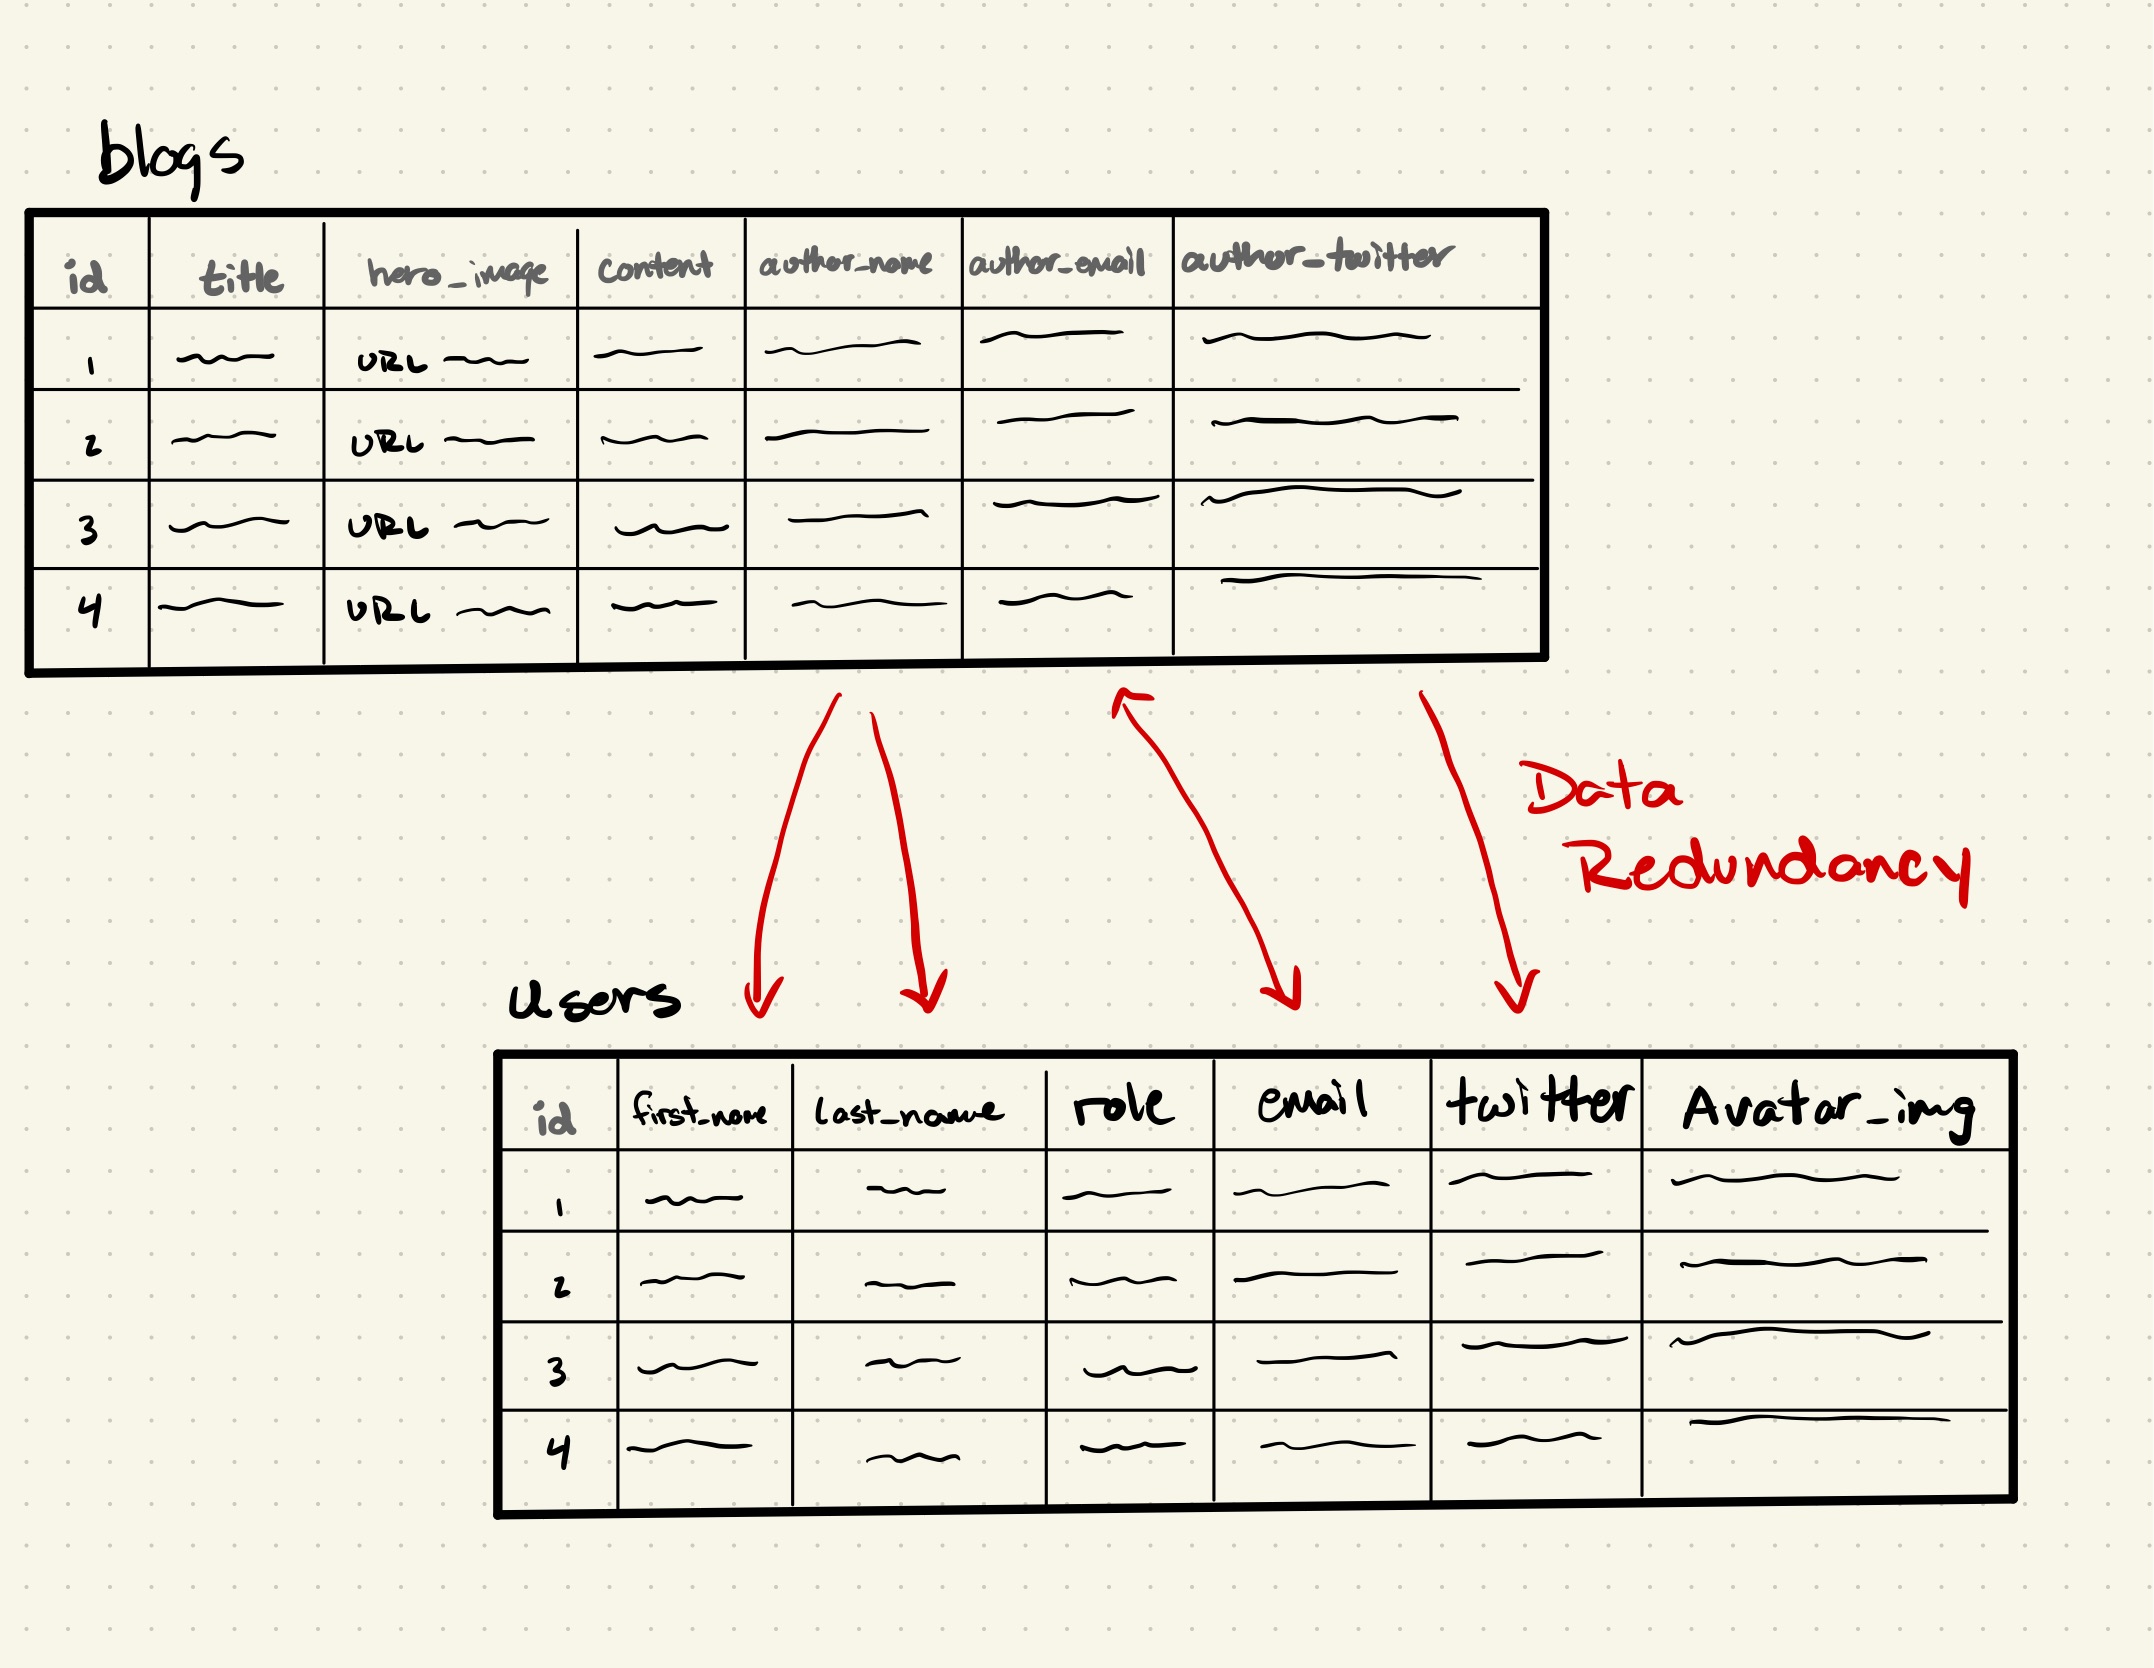 blogs
id title hero_image content author_name author_email author_twitter
1 URL
2 URL
3 URL
4 URL
Data
Redundancy
users
id first_name last_name role email twitter Avatar_img
1
2
3
4